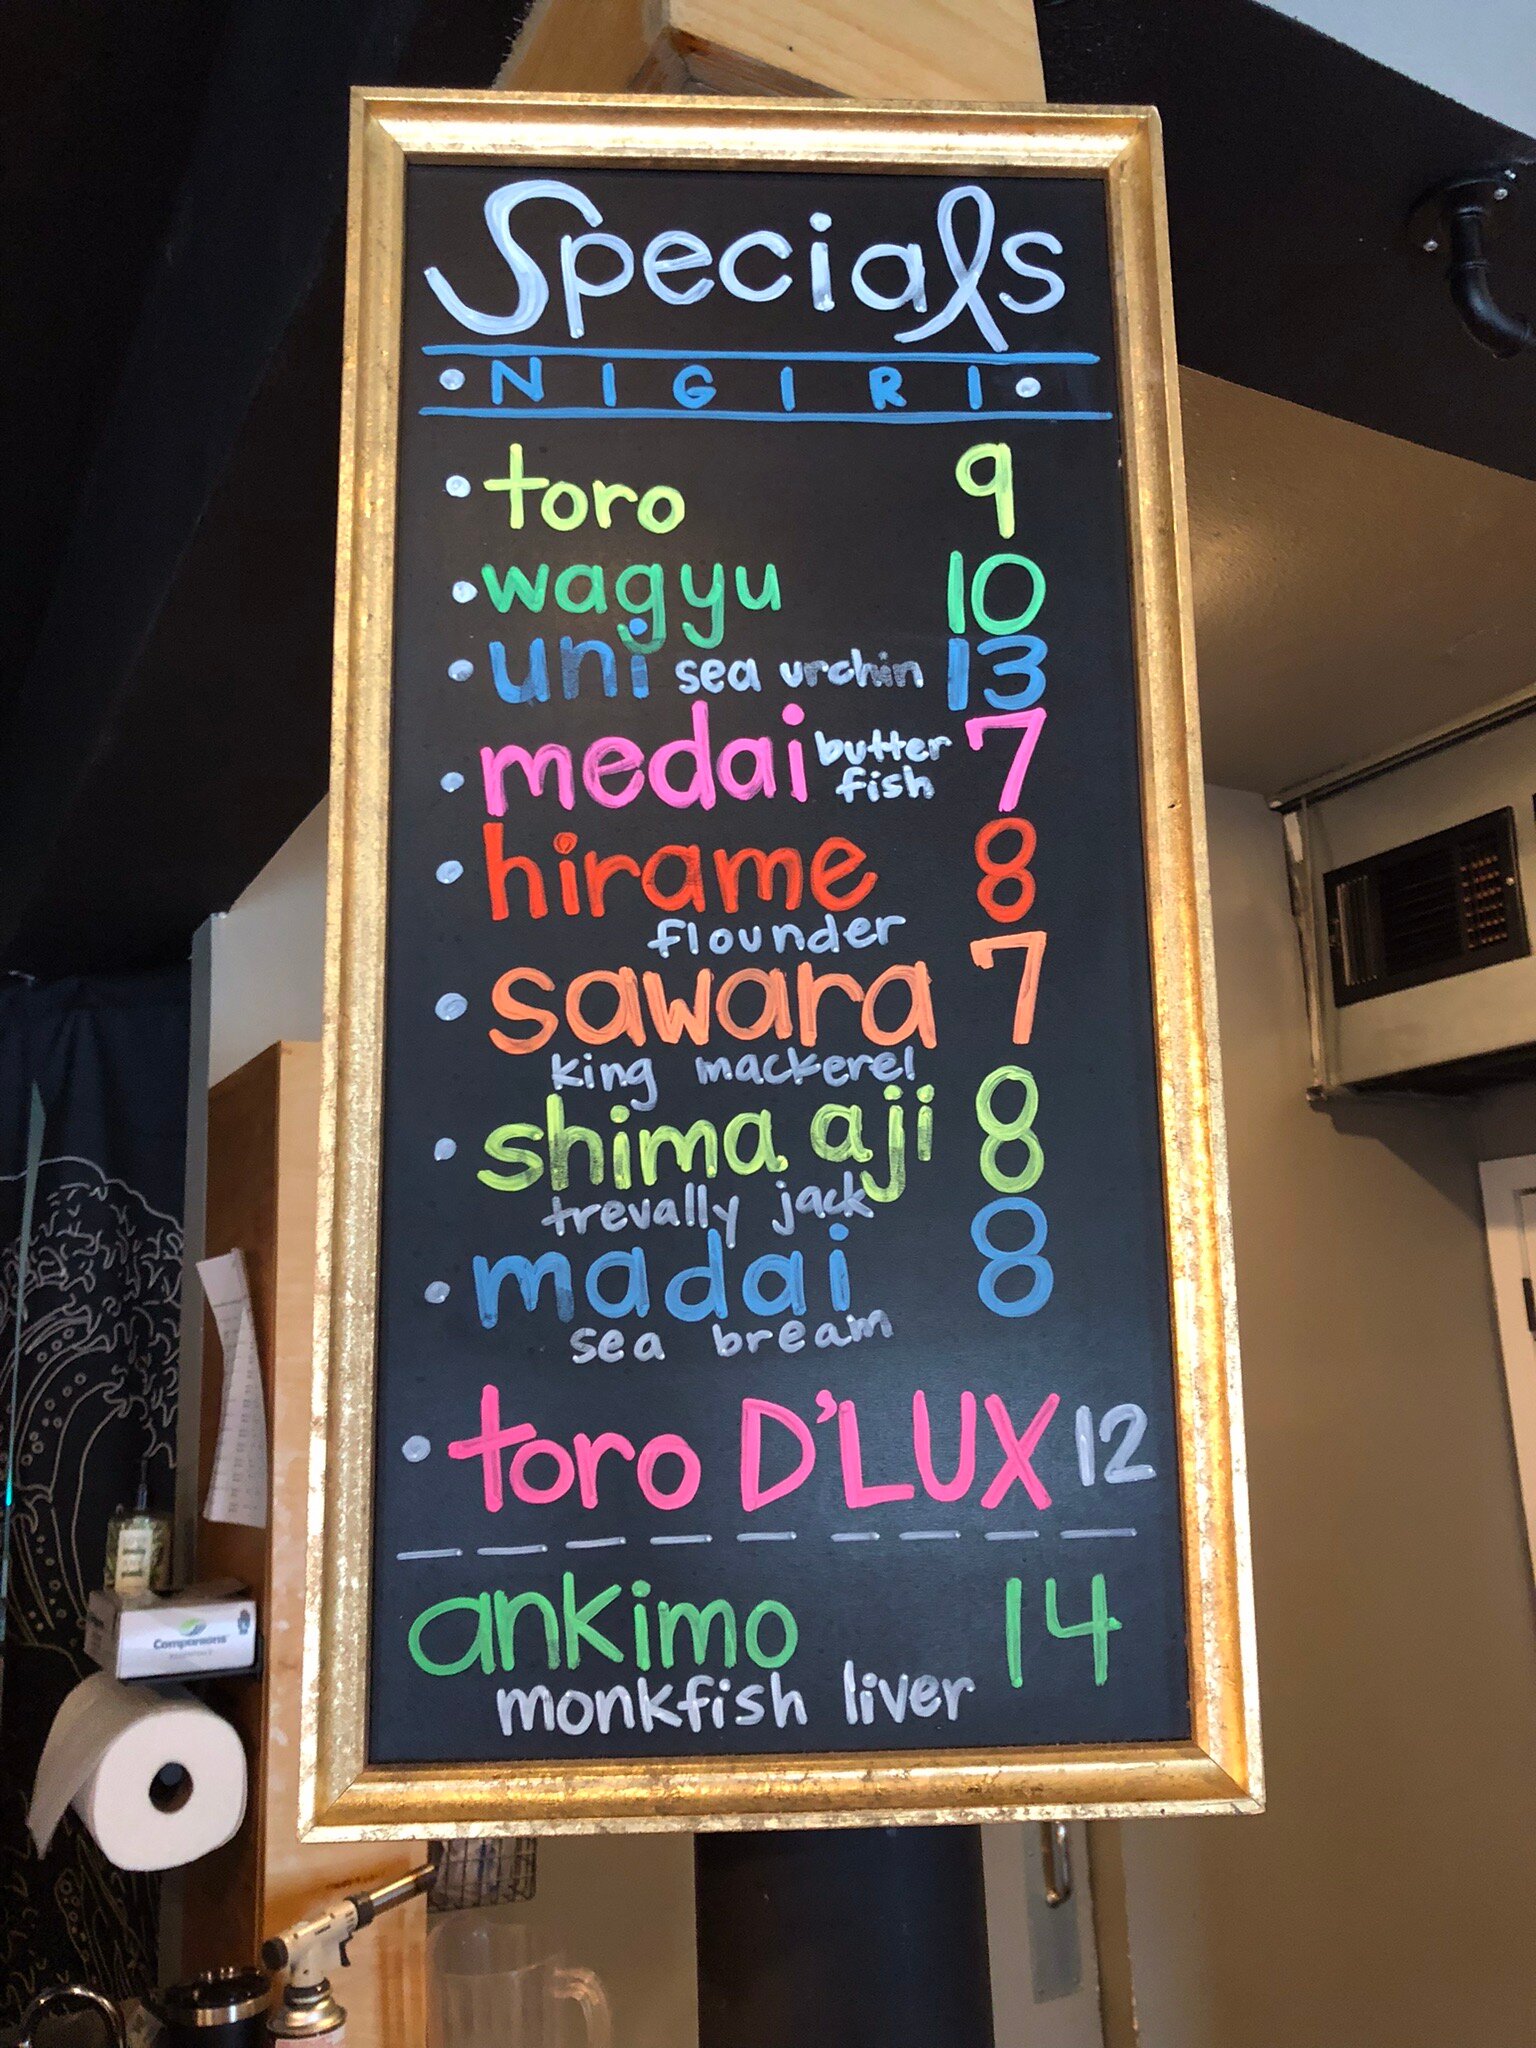 Specials
NIGIRI
toro 9
wagyu 10
uni sea urchin 13
medai butter fish 7
hirame 8
flounder
sawara 7
king mackerel
shima aji 8
trevally jack
madai 8
sea bream
toro D'LUX 12
ankimo 14
monkfish liver
Companions